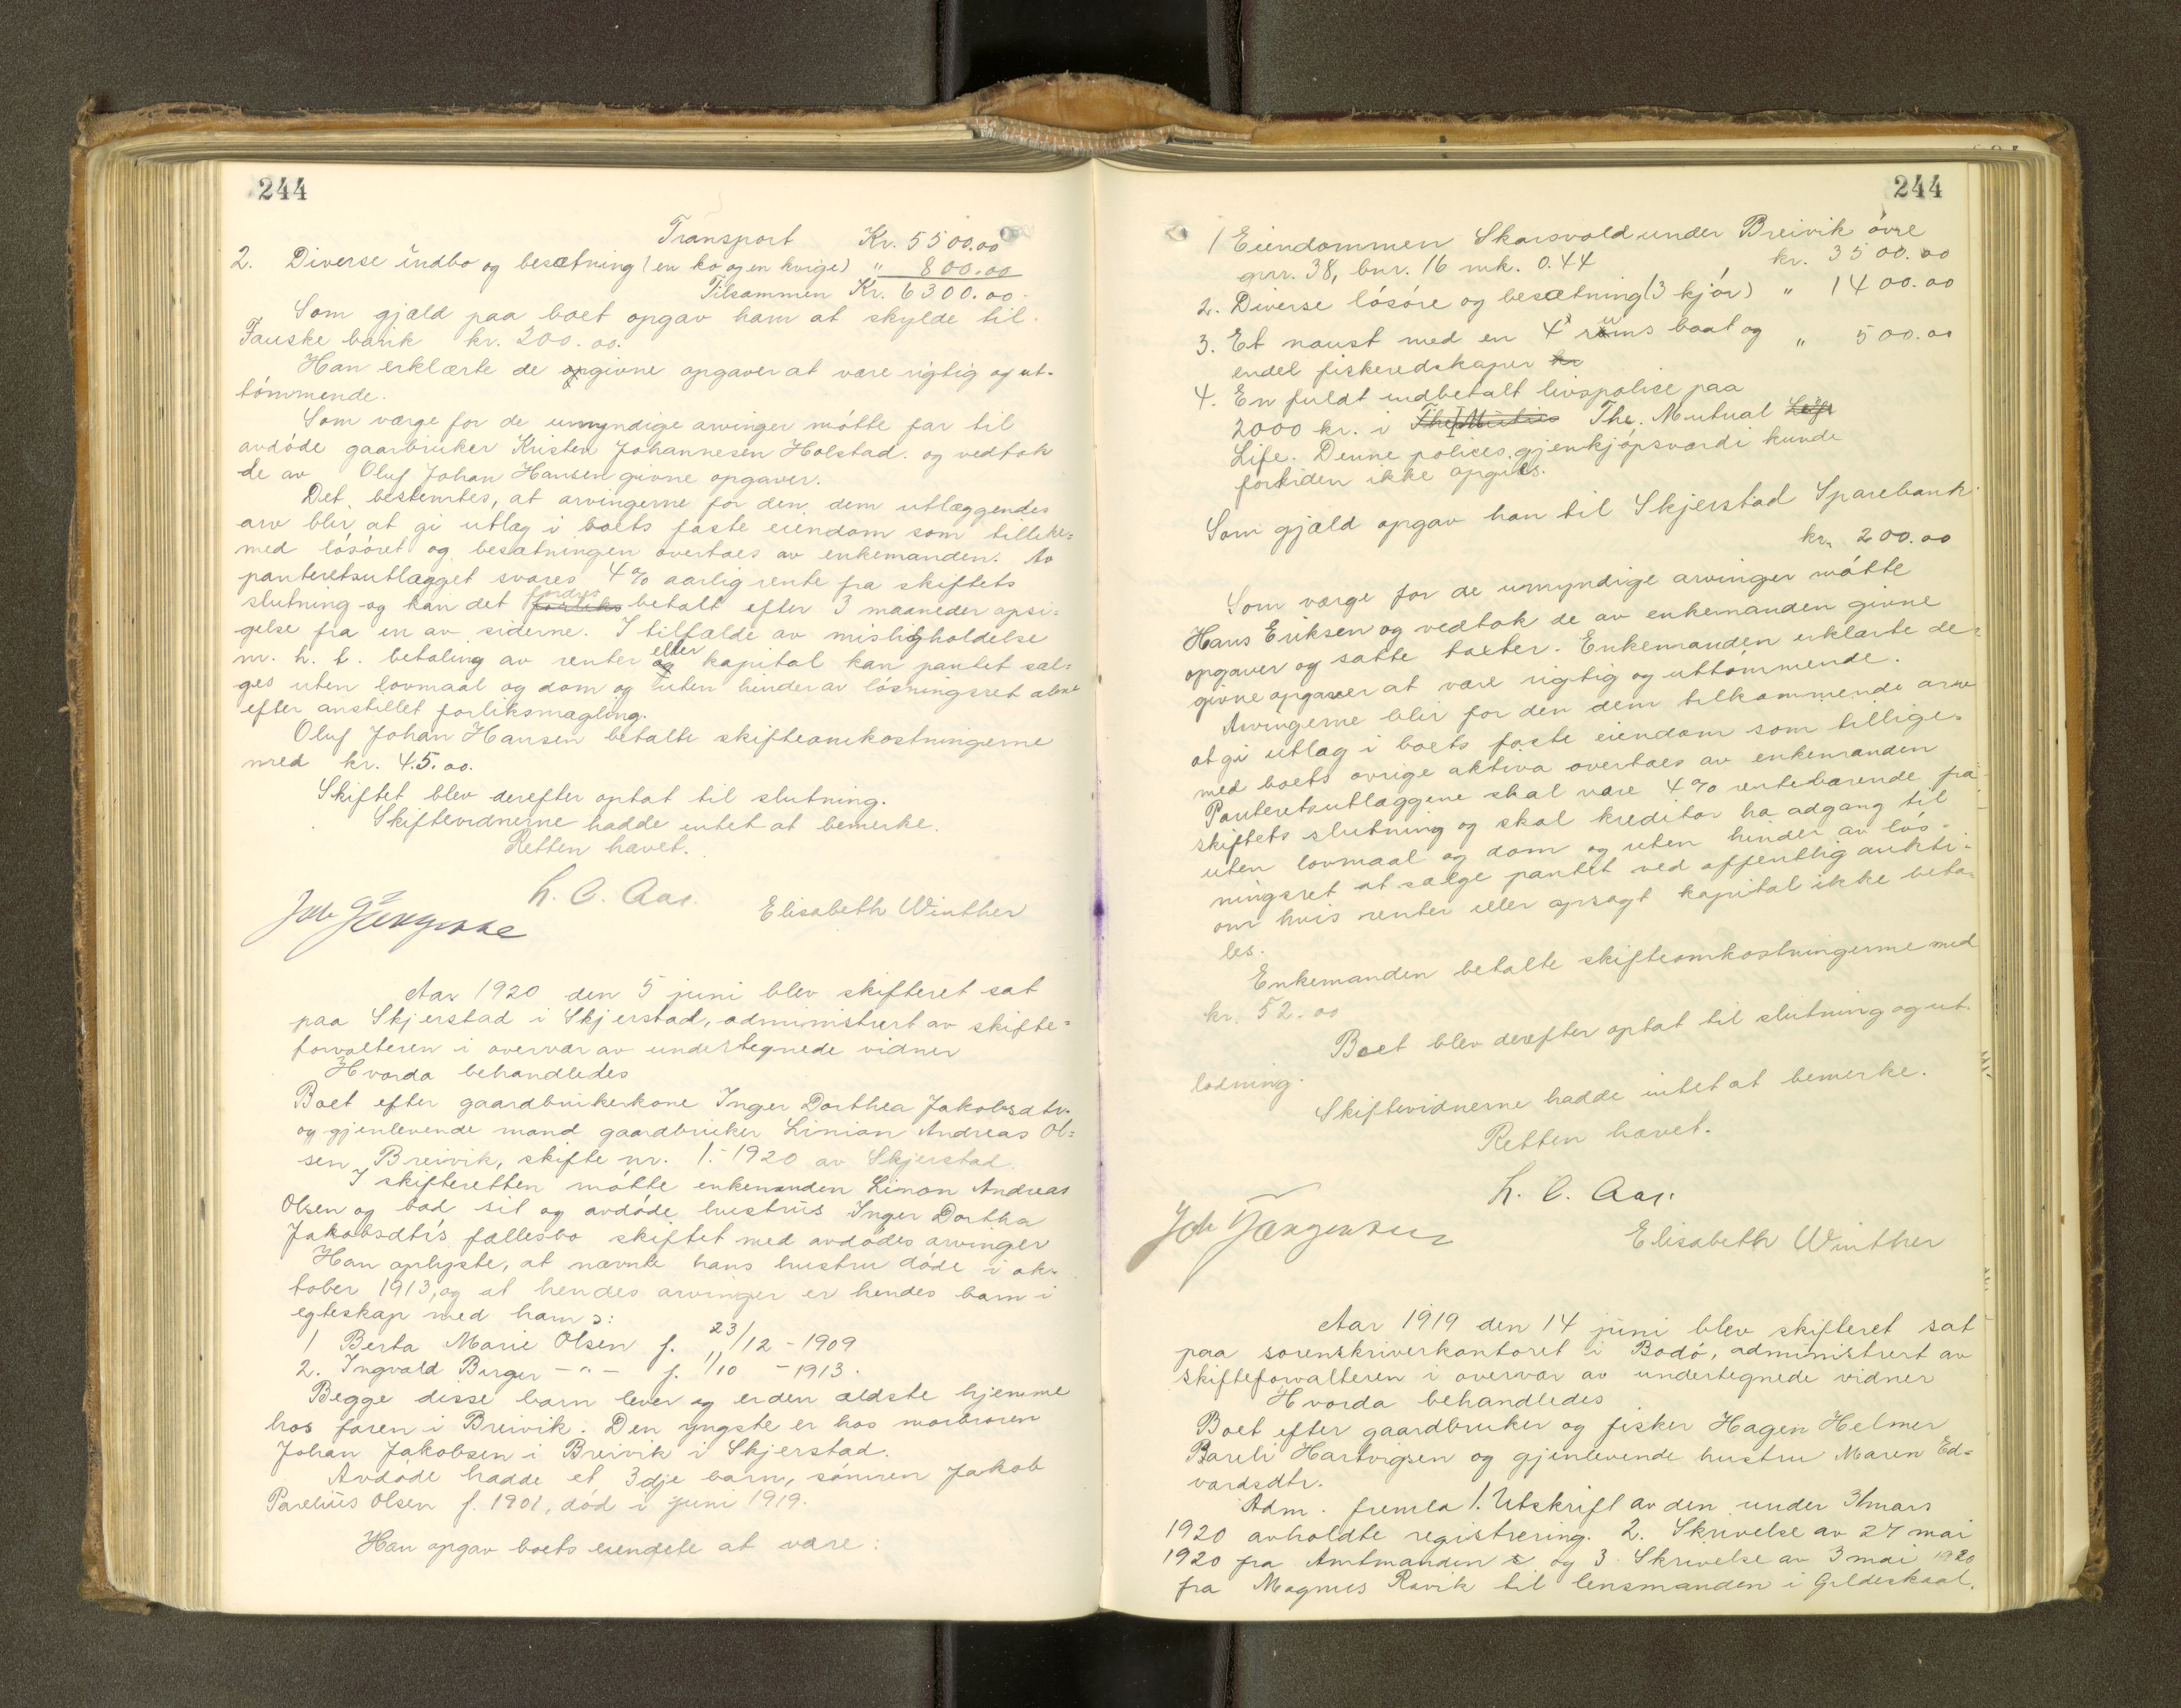 244
Transport Kr. 5500.00
2. Diverse indbo og besætning (en ko og en kvige) " 800.00
Tilsammen Kr. 6300.00.
Som gjæld paa boet opgav ham at skylde til
Fauske bank kr. 200.00.
Han erklærte de opgivne opgaver at være rigtig og ut-
tömmende.
Som værge for de umyndige arvinger mötte far til
avdöde gaarbruker Kristen Johannesen Holstad. og vedtok
de av Oluf Johan Hansen givne opgaver.
Det bestemtes, at arvingerne for den dem utlæggendes
arv blir at gi utlæg i boets faste eiendom som tillike=
med lösöret og besætningen overtaes av enkemanden. Av
panteretsutlægget svares 4% aarlig rente fra skiftets
slutning og kan det fordres betalt efter 3 maaneder opsi=
gelse fra en av siderne. I tilfælde av misligholdelse
m. h. t. betaling av renter eller kapital kan pantet sæl=
ges uten lovmaal og dom og uten hinder av lösningsret alene
efter anstillet forliksmægling.
Oluf Johan Hansen betalte skifteomkostningerne
med kr. 45.00.
Skiftet blev derefter optat til slutning.
Skiftevidnerne hadde intet at bemerke.
Retten hævet.
h. C. Aas.
Elisabeth Winther
Aar 1920 den 5 juni blev skifteret sat
paa Skjerstad i Skjerstad, administrert av skifte=
forvalteren i overvær av undertegnede vidner
Hvorda behandledes
Boet efter gaardbrukerkone Inger Dorthea Jakobsdtr.
og gjenlevende mand gaardbruker Linian Andreas Ol=
sen, Breivik, skifte nr. 1.-1920 av Skjerstad.
I skifteretten mötte enkemanden Limon Andreas
Olsen og bad sit og avdöde hustrus Inger Dortha
Jakobsdtrs fællesbo skiftet med avdödes arvinger
Han oplyste, at nævnte hans hustru döde i ok-
tober 1913, og at hendes arvinger er hendes barn i
egteskap med ham:
1 Berta Marie Olsen f. 23/12 - 1909
2. Ingvald Birger - " - f. 11/10 - 1913.
Begge disse barn lever og er den ældste hjemme
hos faren i Breivik. Den yngste er hos morbroren
Johan Jakobsen i Breivik i Skjerstad.
Avdöde hadde et 3dje barn, sönnen Jakob
Parelius Olsen f. 1901, död i juni 1919.
Han opgav boets eiendele at være:
244
1 Eiendommen Skarsvold under Breivik övre
gnr. 38, bnr. 16 mk. 0.44 kr. 3500.00
2. Diverse lösöre og besætning (3 kjör) " 1400.00
3. Et naust med en 4 rums baat og " 500.00
endel fiskeredskaper kr
4. En fuldt indbetalt livspolise paa
2000 kr. i The Mutual
Life. Denne polices gjenkjöpsværdi kunde
fortiden ikke opgives.
Som gjæld opgav han til Skjerstad Sparebank
kr. 200.00
Som værge for de umyndige arvinger mötte
Hans Eriksen og vedtok de av enkemanden givne
opgaver og satte takster. Enkemanden erklærte de
givne opgaver at være rigtig og uttömmende.
Arvingerne blir for den dem tilkommende arv
at gi utlæg i boets faste eiendom som tillige-
med boets övrige aktiva overtaes av enkemanden
Panteretsutlæggene skal være 4% rentebærende fra
skiftets slutning og skal kreditor ha adgang til
uten lovmaal og dom og uten hinder av lös-
ningsret at sælge pantet ved offentlig aukti-
on hvis renter eller opsagt kapital ikke beta-
les.
Enkemanden betalte skifteomkostningerne med
kr. 52.00
Boet blev derefter optat til slutning og ut-
lodning.
Skiftevidnerne hadde intet at bemerke.
Retten hævet.
h. C. Aas.
Elisabeth Winther
Aar 1919 den 14 juni blev skifteret sat
paa sorenskriverkontoret i Bodö, administrert av
skifteforvalteren i overvær av undertegnede vidner
Hvorda behandledes
Boet efter gaardbruker og fisker Hagen Helmer
Bareli Hartvigsen og gjenlevende hustru Maren Ed=
vardsdtr.
Adm. fremla 1. Utskrift av den under 31 mars
1920 avholdte registrering. 2. Skrivelse av 27 mai
1920 fra Amtmanden og 3. Skrivelse av 3 mai 1920
fra Magnus Ravik til lensmanden i Gildeskaal.